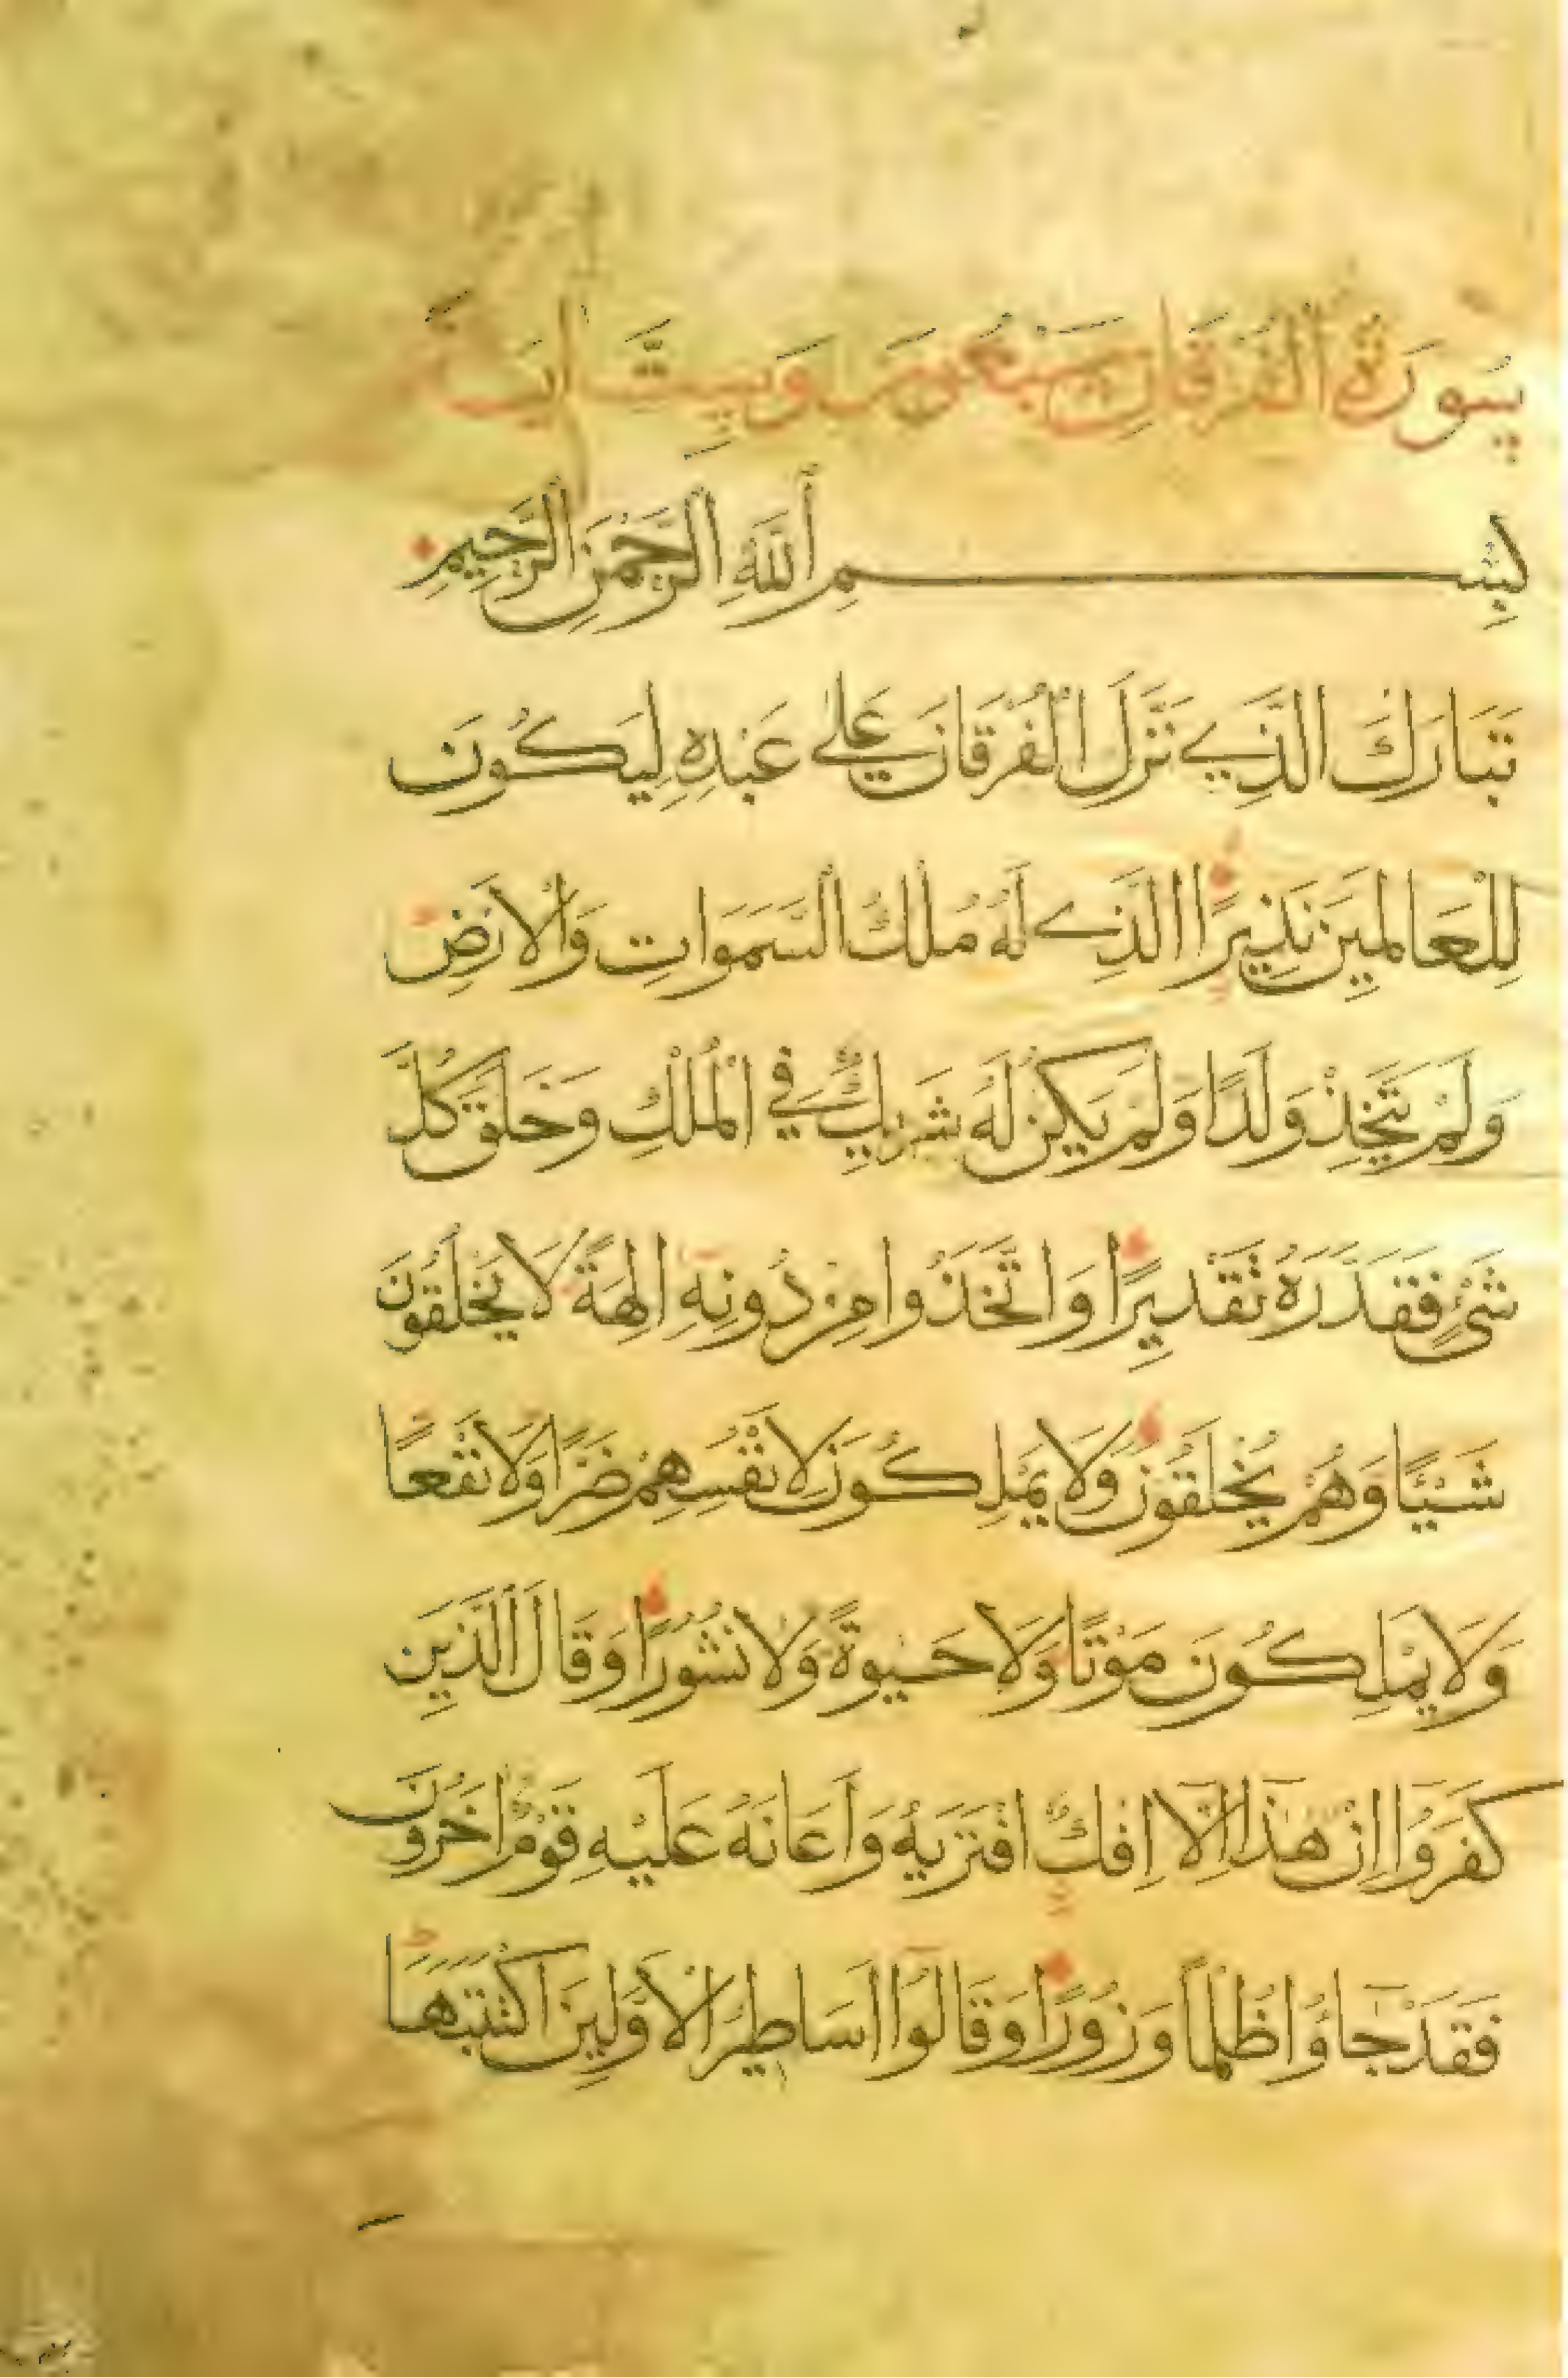 سُورَةُ الْفُرْقَانِ سَبْعُونَ وَسِتُّ اٰيَةً
بِسْمِ اللّٰهِ الرَّحْمٰنِ الرَّحِيمِ
تَبَارَكَ الَّذِي نَزَّلَ الْفُرْقَانَ عَلٰى عَبْدِهِ لِيَكُونَ
لِلْعَالَمِينَ نَذِيرًا الَّذِي لَهُ مُلْكُ السَّمَوَاتِ وَالْاَرْضِ
وَلَمْ يَتَّخِذْ وَلَدًا وَلَمْ يَكُنْ لَهُ شَرِيكٌ فِي الْمُلْكِ وَخَلَقَ كُلَّ
شَيْءٍ فَقَدَّرَهُ تَقْدِيرًا وَاتَّخَذُوا مِنْ دُونِهِ اٰلِهَةً لَا يَخْلُقُونَ
شَيْئًا وَهُمْ يُخْلَقُونَ وَلَا يَمْلِكُونَ لِاَنْفُسِهِمْ ضَرًّا وَلَا نَفْعًا
وَلَا يَمْلِكُونَ مَوْتًا وَلَا حَيٰوةً وَلَا نُشُورًا وَقَالَ الَّذِينَ
كَفَرُوا اِنْ هٰذَا اِلَّا اِفْكٌ افْتَرٰيهُ وَاَعَانَهُ عَلَيْهِ قَوْمٌ اٰخَرُونَ
فَقَدْ جَاؤُا ظُلْمًا وَزُورًا وَقَالُوا اَسَاطِيرُ الْاَوَّلِينَ اكْتَتَبَهَا